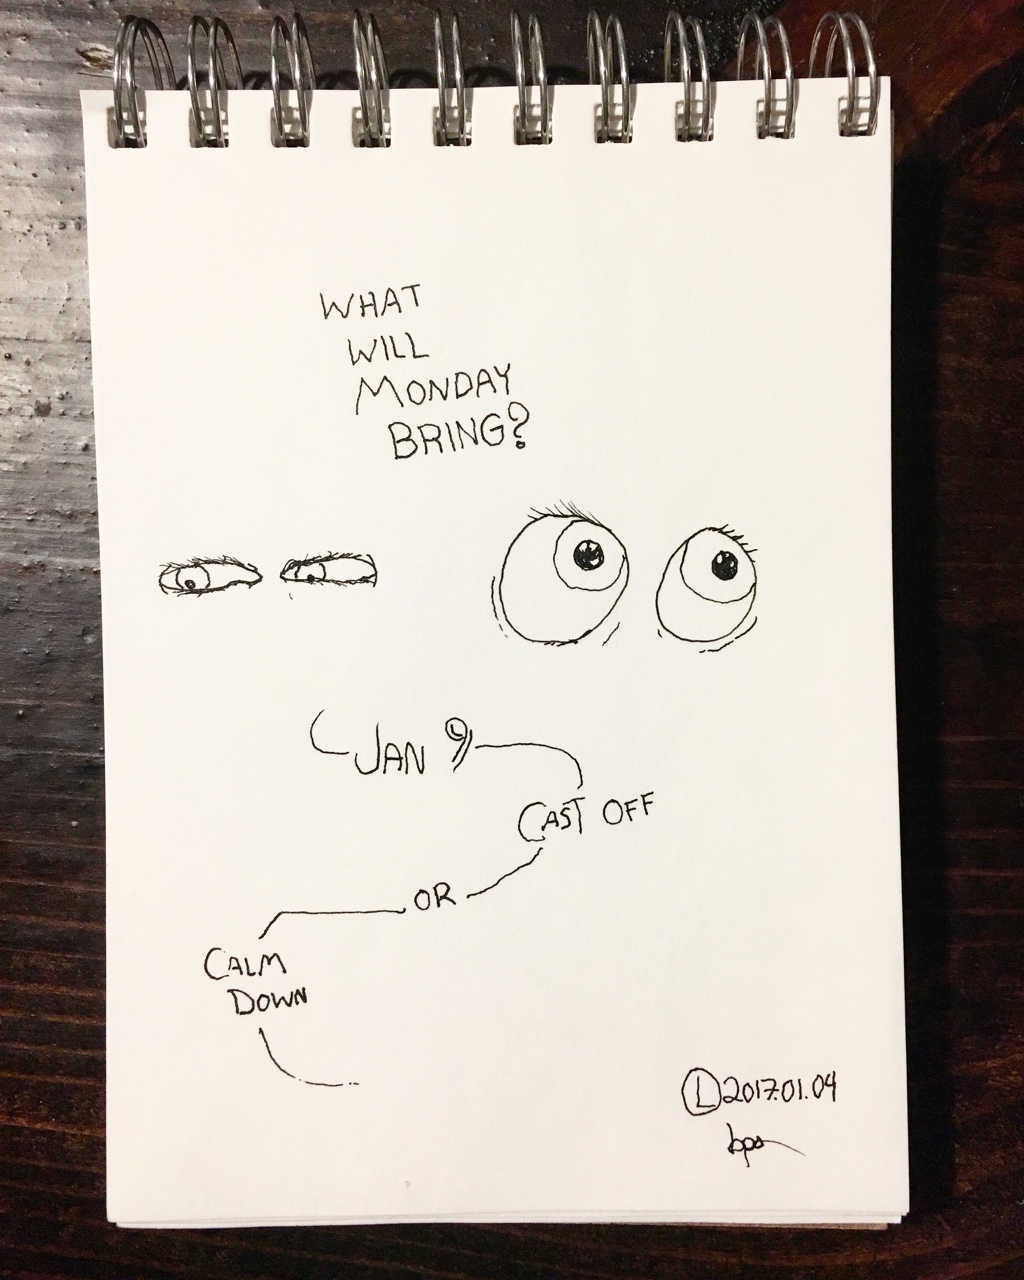 WHAT
WILL
MONDAY
BRING?
JAN 9
CAST OFF
OR
CALM
DOWN
Ⓛ2017.01.04
bps